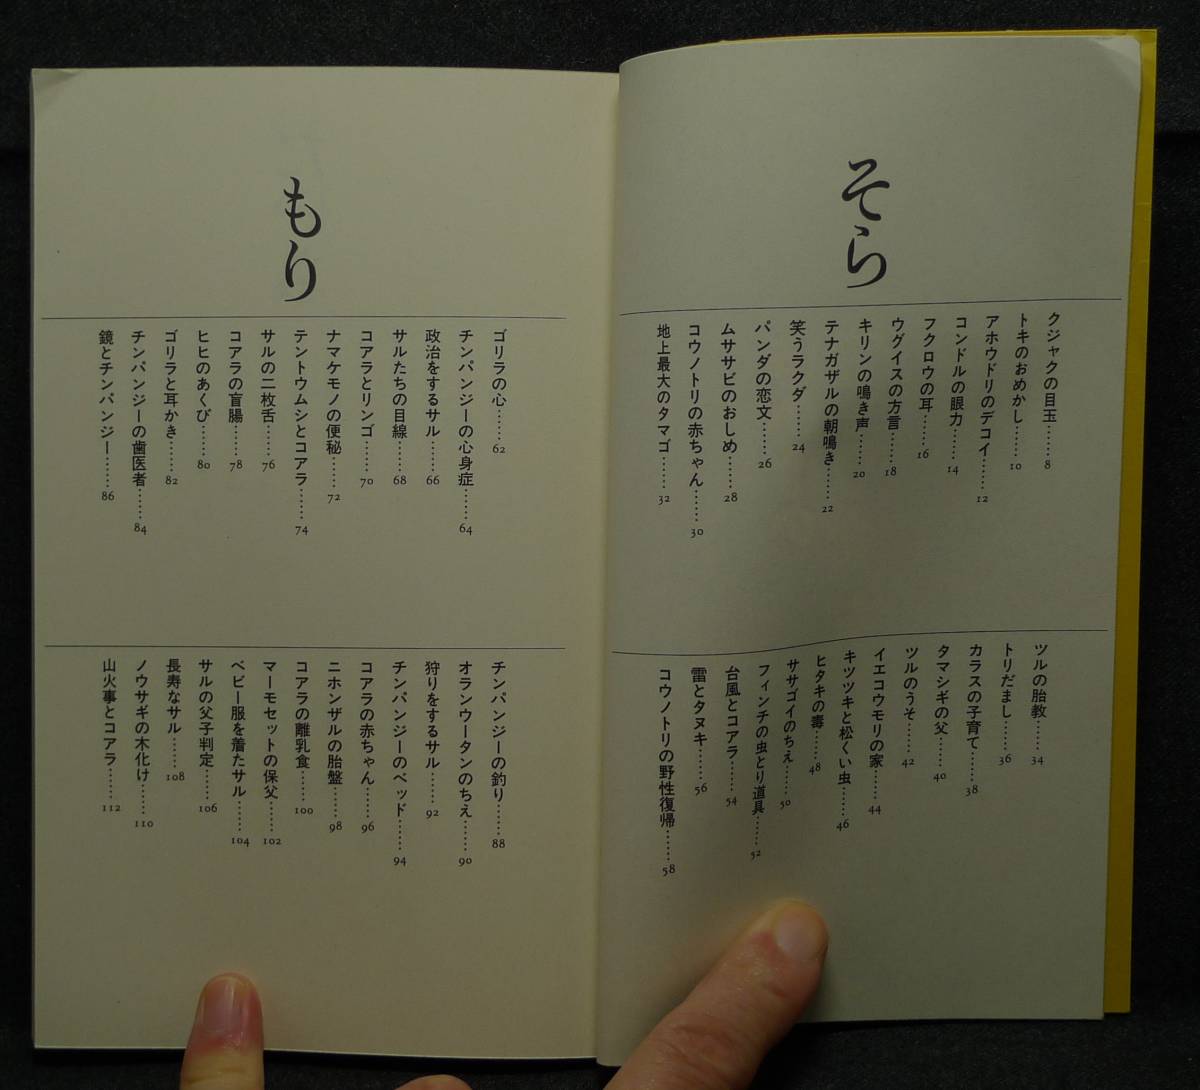 そら
クジャクの目玉……8
トキのおめかし……10
アホウドリのデコイ……12
コンドルの眼力……14
フクロウの耳……16
ウグイスの方言……18
キリンの鳴き声……20
テナガザルの朝鳴き……22
笑うラクダ……24
パンダの恋文……26
ムササビのおしめ……28
コウノトリの赤ちゃん……30
地上最大のタマゴ……32
ツルの胎教……34
トリだまし……36
カラスの子育て……38
タマシギの父……40
ツルのうそ……42
イエコウモリの家……44
キツツキと松くい虫……46
ヒタキの毒……48
ササゴイのちえ……50
フィンチの虫とり道具……52
台風とコアラ……54
雷とタヌキ……56
コウノトリの野性復帰……58
もり
ゴリラの心……62
チンパンジーの心身症……64
政治をするサル……66
サルたちの目線……68
コアラとリンゴ……70
ナマケモノの便秘……72
テントウムシとコアラ……74
サルの二枚舌……76
コアラの盲腸……78
ヒヒのあくび……80
ゴリラと耳かき……82
チンパンジーの歯医者……84
鏡とチンパンジー……86
チンパンジーの釣り……88
オランウータンのちえ……90
狩りをするサル……92
チンパンジーのベッド……94
コアラの赤ちゃん……96
ニホンザルの胎盤……98
コアラの離乳食……100
マーモセットの保父……102
ベビー服を着たサル……104
サルの父子判定……106
長寿なサル……108
ノウサギの木化け……110
山火事とコアラ……112